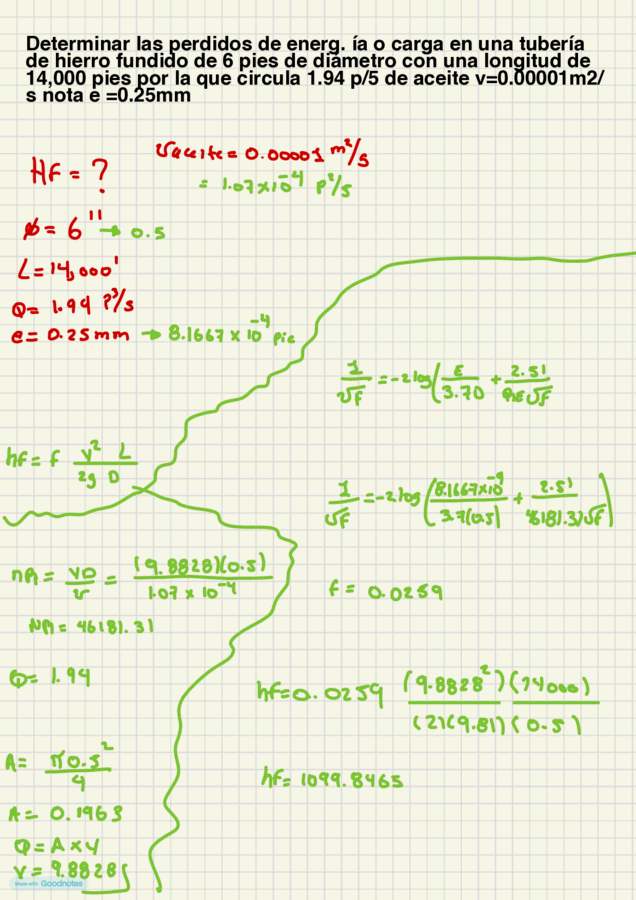 Determinar las perdidos de energ. ía o carga en una tubería
de hierro fundido de 6 pies de diámetro con una longitud de
14,000 pies por la que circula 1.94 p/5 de aceite v=0.00001m2/
s nota e =0.25mm
Hf = ?
νaceite = 0.00001 m²/s
= 1.07x10⁻⁴ P²/s
ø = 6" → 0.5
L = 14,000'
Q = 1.94 P³/s
e = 0.25 mm → 8.1667 x 10⁻⁴ pie
1/√f = -2 log(E/3.70 + 2.51/Re√f)
hf = f v²/2g L/D
1/√f = -2 log(8.1667x10⁻⁴/3.7(0.5) + 2.51/46181.31√f)
nR = VD/ν = (9.8828)(0.5)/1.07 x 10⁻⁴
f = 0.0259
NR = 46181.31
Q = 1.94
hf = 0.0259 (9.8828²)(14000)/(2)(9.81)(0.5)
A = π0.5²/4
hf = 1099.8465
A = 0.1963
Q = A x V
V = 9.8828
Made with Goodnotes